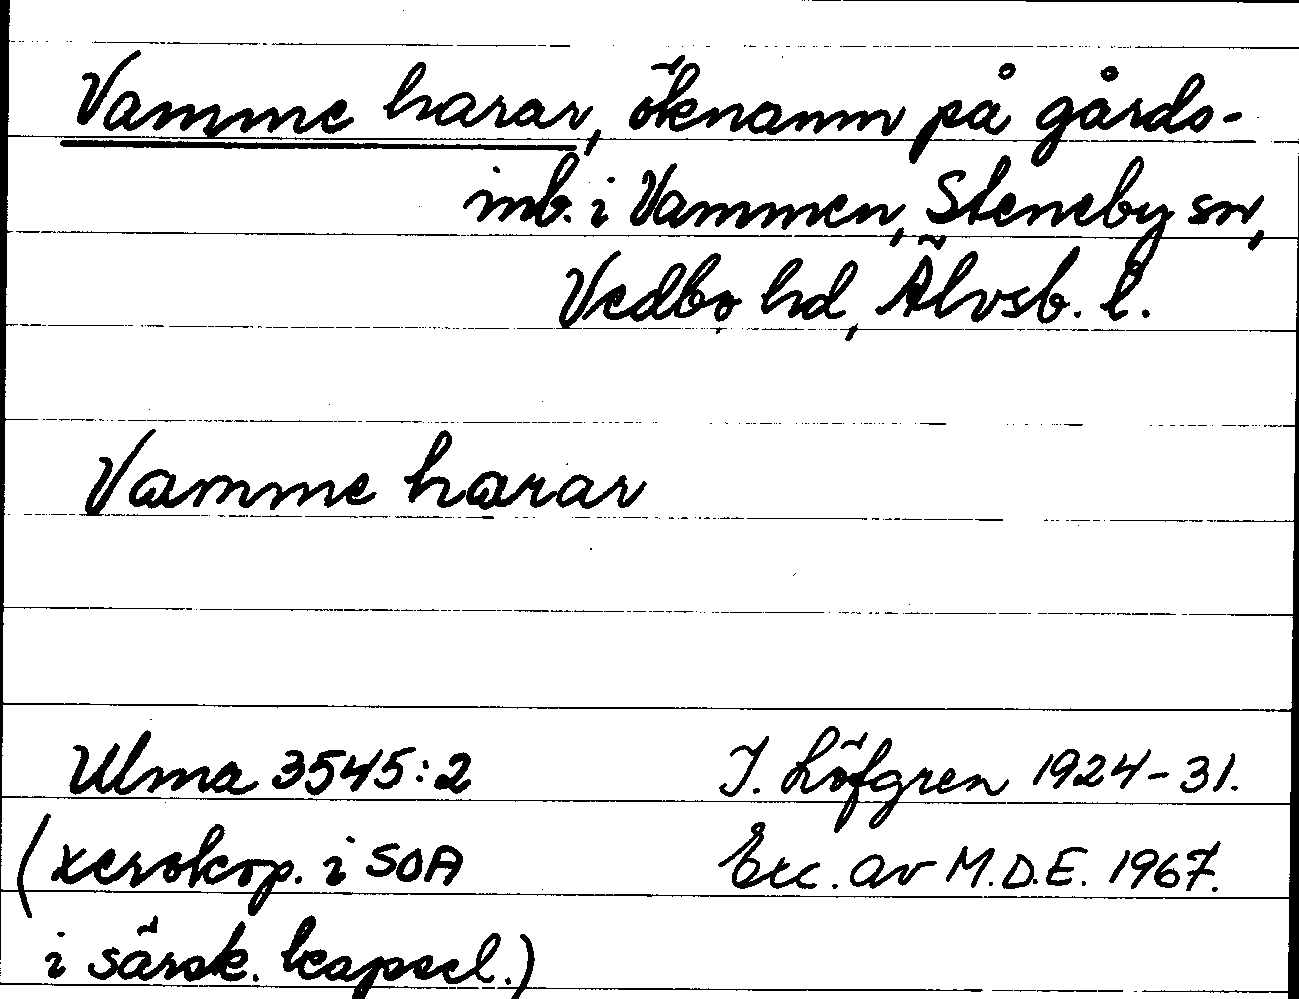 Vamme harar, öknamn på gårds-
inb. i Vammen, Steneby sn,
Vedbo hd, Älvsb. l.
Vamme harar
Ulma 3545:2 I. Löfgren 1924-31.
(xerokop. i SOA Exc. av M.D.E. 1967.
i särsk. kapsel.)